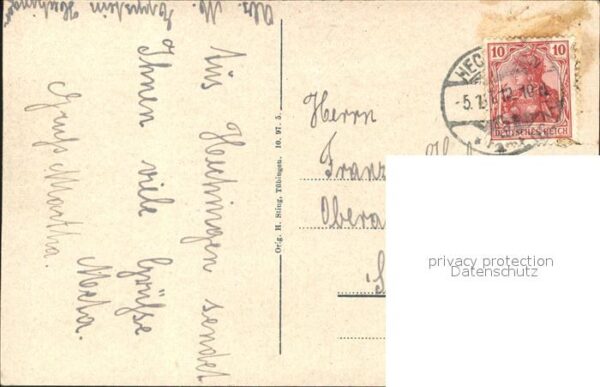 Aus Hechingen sendet
Ihnen viele Grüße
Meta.
Gruß Martha.
Orig. H. Sting, Tübingen. 10. 97. 5.
10 10
DEUTSCHES REICH
HEC
-5.
Herrn
Franz
Obera
privacy protection
Datenschutz